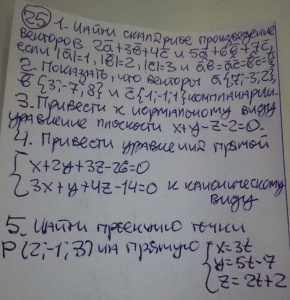 25 1. Найти скалярное произведение
векторов 2a+3b+4c и 5a+6b+7c,
если |a|=1, |b|=2, |c|=3 и ab=ac=bc=
2. Показать, что векторы a{7;-3;2}
b{3;-7;8} и c{1;-1;1} компланарны.
3. Привести к нормальному виду
уравнение плоскости x+y-z-2=0.
4. Привести уравнения прямой
{x+2y+3z-26=0
3x+y+4z-14=0 к каноническому
виду
5. Найти проекцию точки
P(2;-1;3) на прямую {x=3t
y=5t-7
z=2t+2